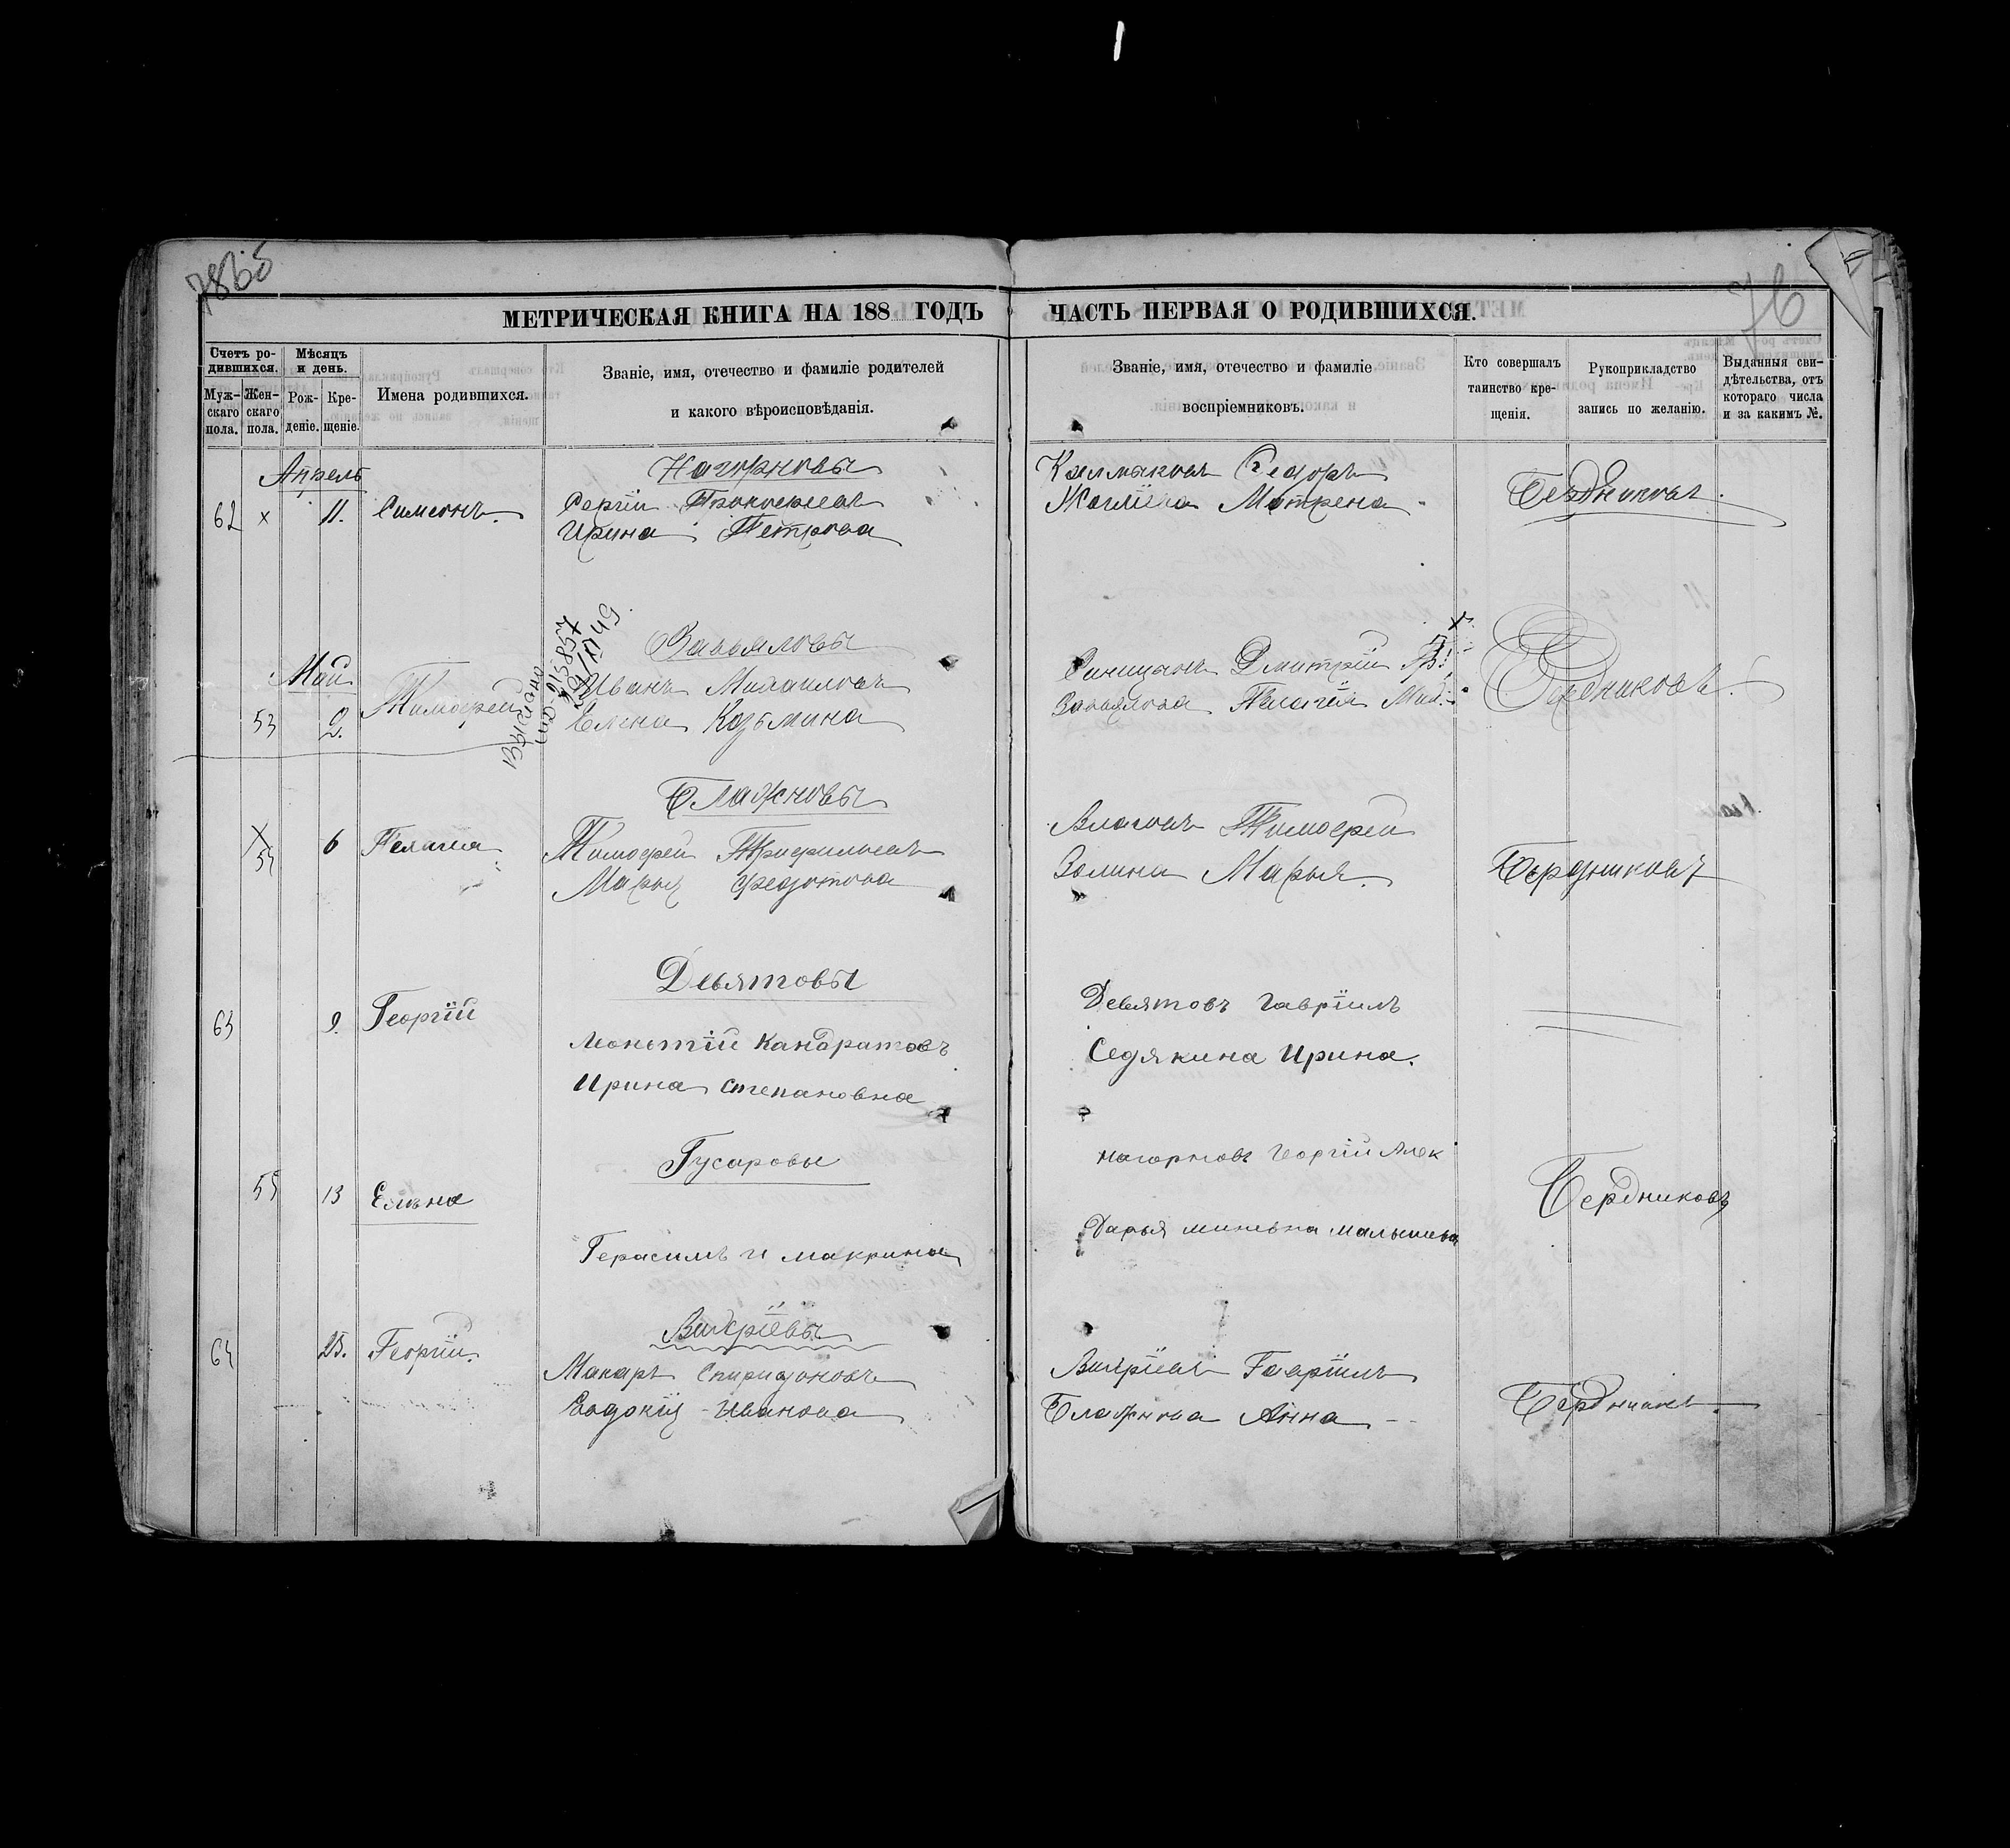 76
МЕТРИЧЕСКАЯ КНИГА НА 188 ГОДЪ
ЧАСТЬ ПЕРВАЯ О РОДИВШИХСЯ.
Счетъ ро-
дившихся.
Муж-
скаго
пола.
Жен-
скаго
пола.
Мѣсяцъ
и день.
Рож-
деніе.
Кре-
щеніе.
Имена родившихся.
Званіе, имя, отечество и фамиліе родителей
и какого вѣроисповѣданія.
Званіе, имя, отечество и фамиліе
воспріемниковъ.
Кто совершалъ
таинство кре-
щенія.
Рукоприкладство
запись по желанію.
Выданныя сви-
дѣтельства, отъ
котораго числа
и за какимъ №.
Апрель
62 х 11. Симеонъ.
Нагорновы
Сергій Прокофьевъ
Ирина Петрова
Калмыковъ Федоръ
Матрена
Бердниковъ.
Май
53 2. Тимофей
Завьяловы
Иванъ Михаиловъ
Елена Козьмина
Синицынъ Дмитрій
Завьялова Пелагія Мих.
Бердниковъ
54 6 Пелагия
Блажновы
Тимофей Трифильевъ
Марья Федотова
Власовъ Тимофей
Золина Марья.
Бердниковъ
63 9. Георгій
Девятовы
Леонтій Кандратовъ
Ирина Степановна
Девятовъ Гавріилъ
Седякина Ирина.
55 13 Елена
Гусаровы
Герасимъ и Макрина
Нагорновъ Георгій Алек
Дарья Малышева
Бердниковъ
64 23. Георгій.
Вихріевы
Макаръ Спиридоновъ
Евдокія Иванова
Вихріевъ Гавріилъ
Блажнова Анна
Бердниковъ